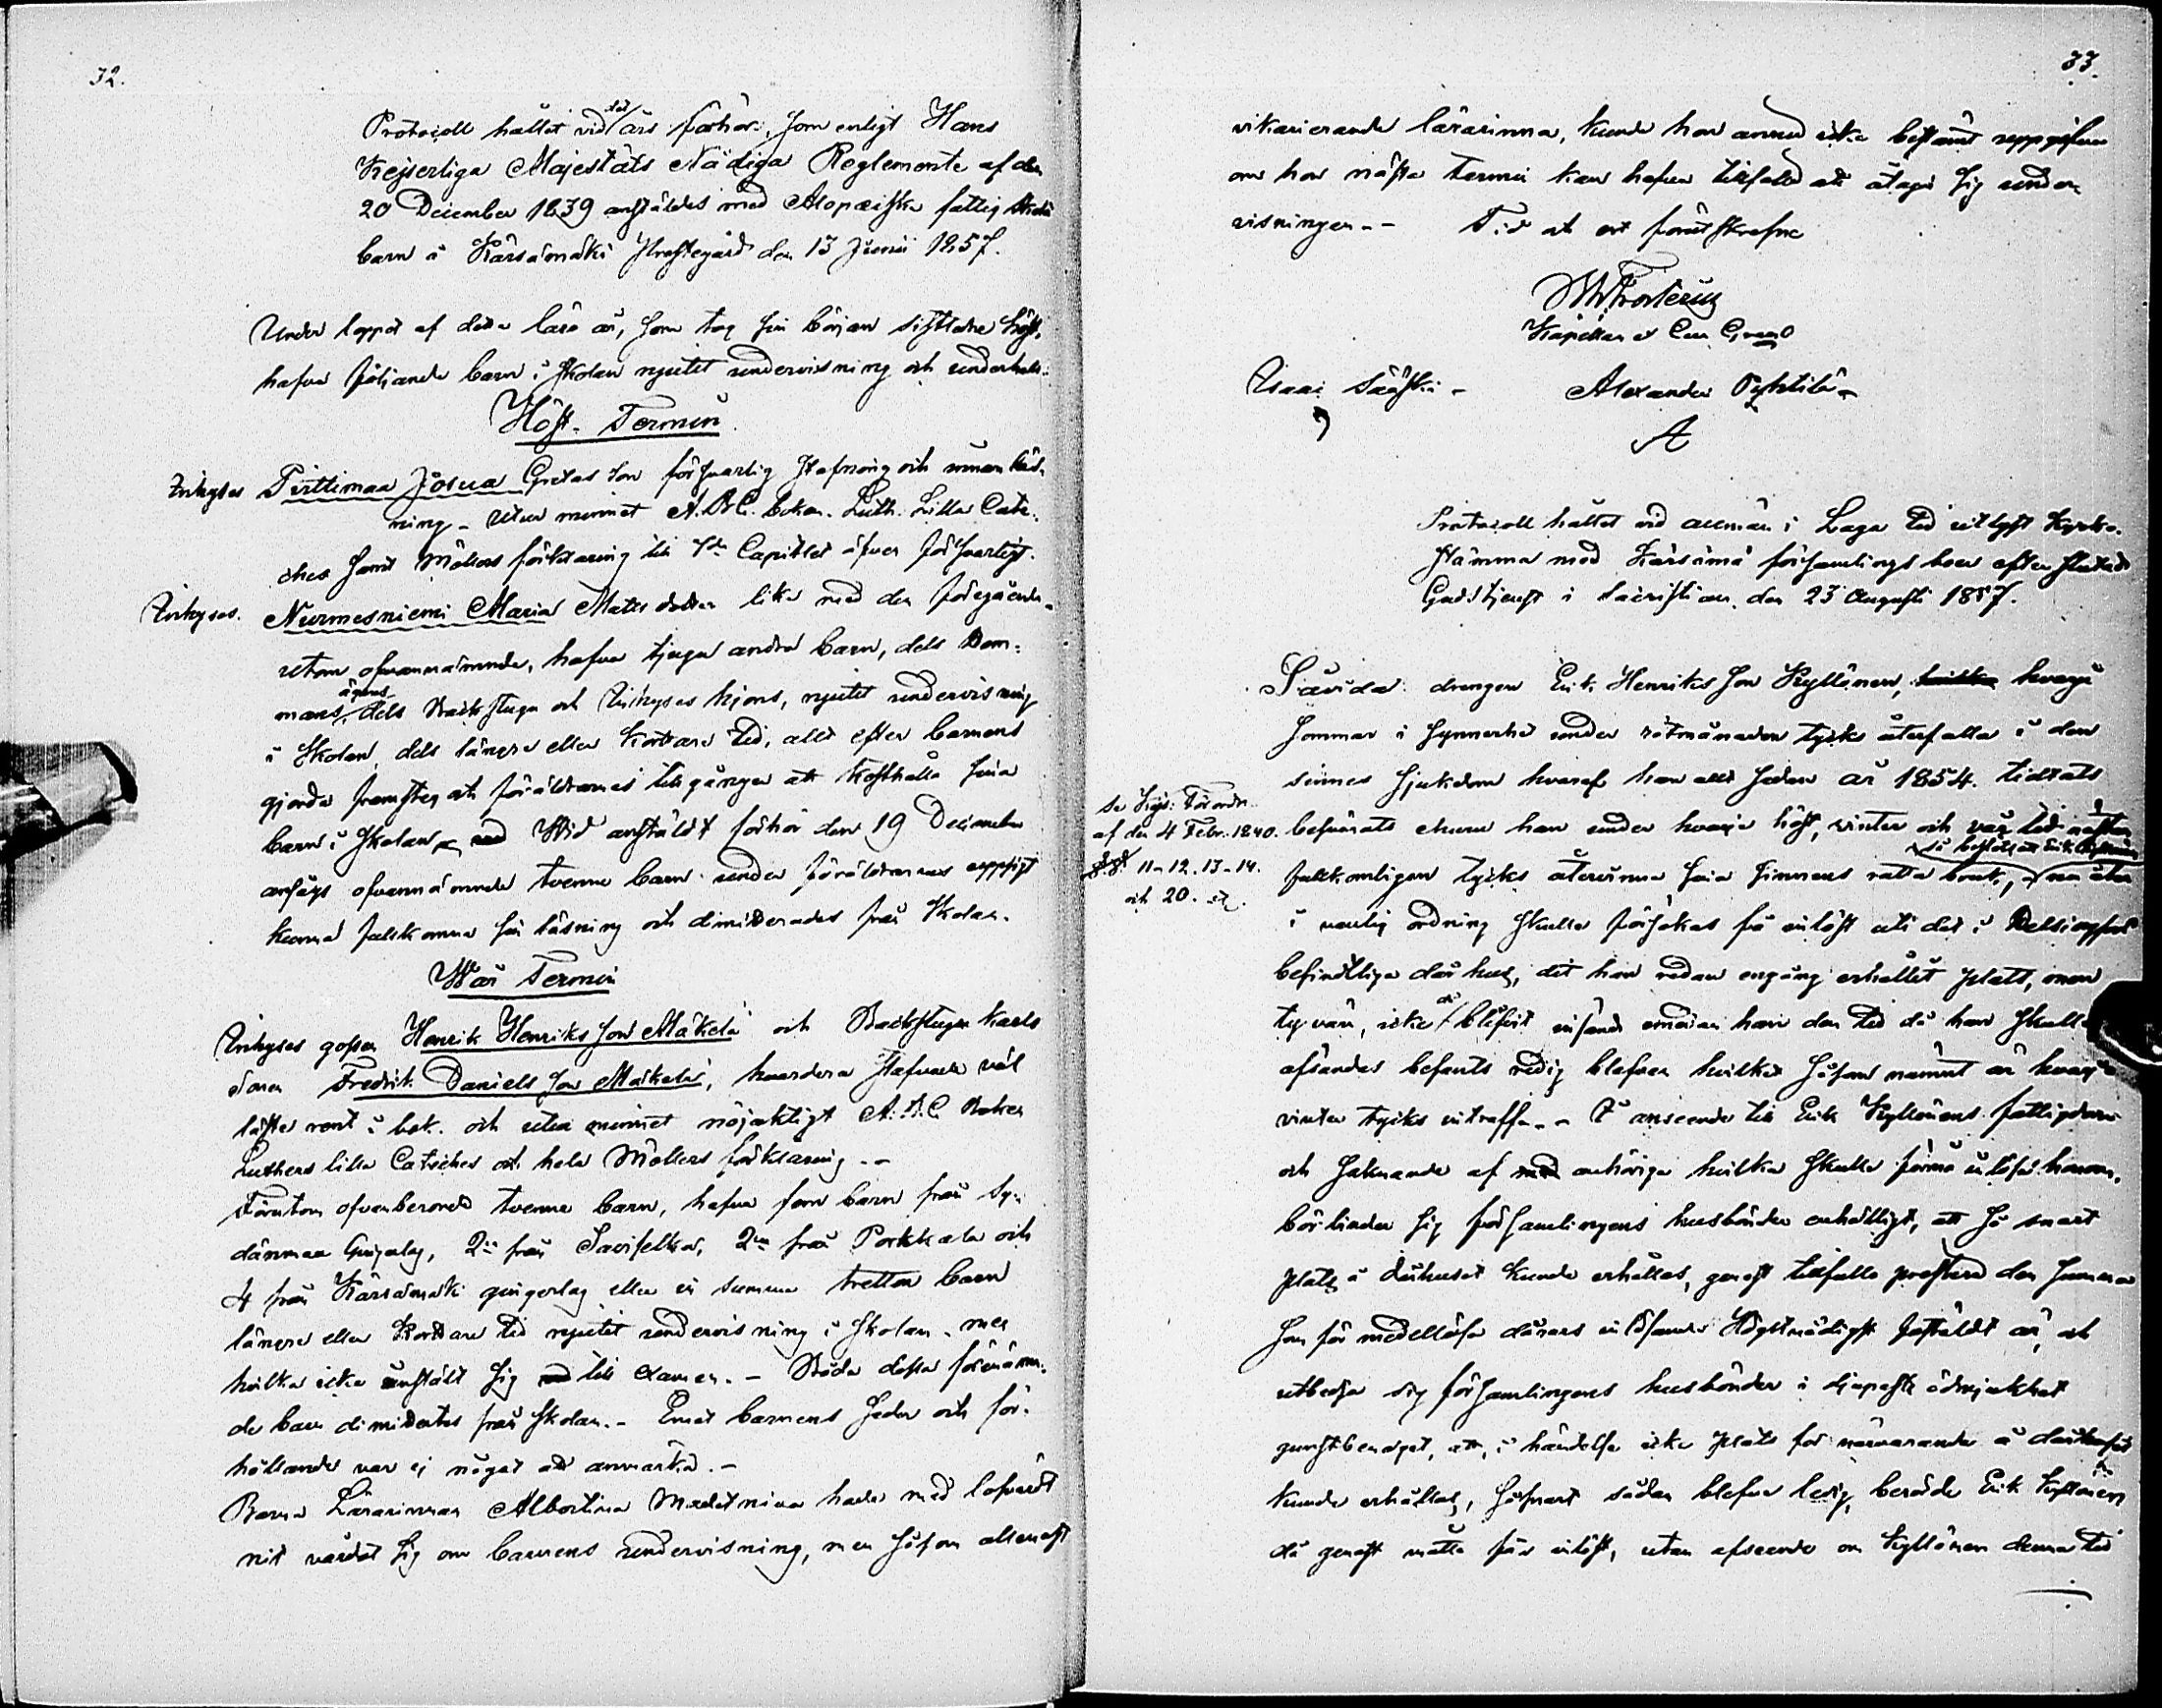 32.
Protocoll hållet vid det års förhör, som enligt Hans
Kejserliga Majestäts Nådiga Reglemente af den
20 December 1839 anstäldes med Alopæiska fattig Skole
barn å Kärsämäki Prästegård den 13 Junii 1857.
Under loppet af detta läro år, som tog sin början sistledne höst,
hafva följande barn i Skolan njutit undervisning och underhåll:
Höst-Termin
Inhyses Pirttimaa Josua Gretas son försvarlig stafning och innan läs-
ning - utur minnet A.B.C. boken. Luth. Lilla Cate-
ches samt Möllers förklaring till Capitlet äfven försvarligt.
Inhyses. Nurmesniemi Maria Mats dotter lika med den föregående.
utom ofvannämnde, hafva tjugu andra barn, dels Bon-
mans, ägares dels Backstugu och Inhyses hjons, njutit undervisning
i Skolan, dels längre eller kortare tid, allt efter barnens
gjorda framsteg och föräldrarnes tillgångar att kosthålla sina
barn i Skolan. Wid anstäldt förhör den 19 December
ansågs ofvannämnde tvenne barn under föräldrarnes uppsigt
kunna fullkomna sin läsning och dimitterades från Skolan.
Wår Termin
Inhyses gossen Henrik Henriks son Mäkelä och Backstugu karls
sonen Fredrik Daniels son Mäkelä, hvardera stafvade väl
läste rent i bok. och utur minnet nöjaktigt A.B.C Boken
Luthers lilla Cateches och hela Möllers förklaring. -
Förutom ofvanberörde tvenne barn, hafva fem barn från Sy-
dänmaa Gingerlag, 2ne från Saviselkä, 2ne från Porkkala och
4 från Kärsämäki gingerlag eller in summa tretton barn
längre eller kortare tid njutit undervisning i Skolan, men
hvilka icke instält sig till examen. - Båda dessa förenämn-
de barn dimitterades från Skolan. - Emot barnens seder och för-
hållande var ej något att anmärka. -
Barna Lärarinnan Albertina hade med lofvärdt
nit vårdat sig om barnens undervisning, men såsom allenast
33.
vikarierande lärarinna, kunde hon ännu icke bestämt uppgifva
om hon nästa termin kan hafva tillfälle att åtaga sig under-
visningen. - Tid och ort förutskrefne
Kapellan
Isaac Sääski - Alexander Pyhtilä -
A
Protocoll hållet vid allmän i Laga tid utlyst Kyrko-
stämma med Kärsämä församlings boer efter slutad
Gudstjenst i Sacristian, den 23 Augusti 1857.
Såvida drengen Erik Henriks son Kyllönen, hvarje
sommar i synnerhet under rötmånaden tycks återfalla i den
sinnes sjukdom hvaraf han allt sedan år 1854. tidtals
besvärats ehuru han under hvarje höst, vinter och vår tid nästan
se Kejs: Förordn.
af den 4 Febr. 1840.
§.§. 11-12.13-14.
och 20.
fullkomligen tycks återvinna sina sinnens rätta bruk,
i vanlig ordning skulle försökas få inlöst uti det i Helsingfors
befindtliga dårhus, dit han redan engång erhållit plats, men
tyvärr, icke då blifvit insänd emedan han den tid då han skulle
afsändas befants redig blefven hvilket såsom nämnt är hvarje
vinter tycks inträffa. - I anseende till Erik Kyllönens fattigdom
och saknande af anhöriga hvilka skulle förmå inlösa honom,
förbinder sig församlingens husbönder enhälligt, att så snart
plats å dårhuset kunde erhållas, genast tillfullo prestera den summa
som för medellösa dårars inlösande Högstnådigst faststäldt är, och
utbedja sig församlingens husbönder i djupaste ödmjukhet
gunstbenäget, att, i händelse icke plats för närvarande å dårhuset
kunde erhållas, såsnart sådan blefve ledig, berörde Erik Kyllönen
då genast måtte få inlöst, utan afseende om Kyllönen denna tid